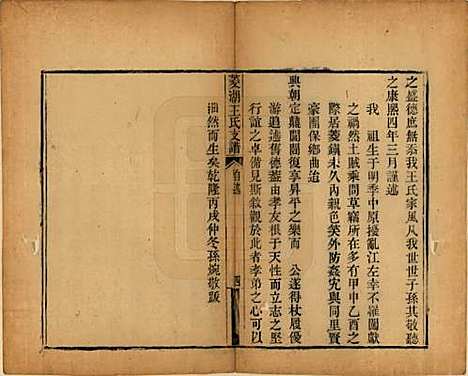 之盛德庶無忝我王氏家風凡我世世子孫其敬聽
之康熙四年三月謹述
我 祖生于明季中原擾亂江左幸不罹闖獻
之禍然土賊乘間草竊所在多有甲申乙酉之
際居菱鎮未久內親色笑外防姦宄與同里賢
豪團保鄉曲迨
興朝定鼎閭閻復享昇平之樂而 公遂得杖履優
游追述舊德蓋由孝友根于天性而立志之堅
行誼之卓備見斯敘觀於此者孝弟之心可以
油然而生矣乾隆丙戌仲冬孫婉敬跋
菱湖王氏支譜
自述
四